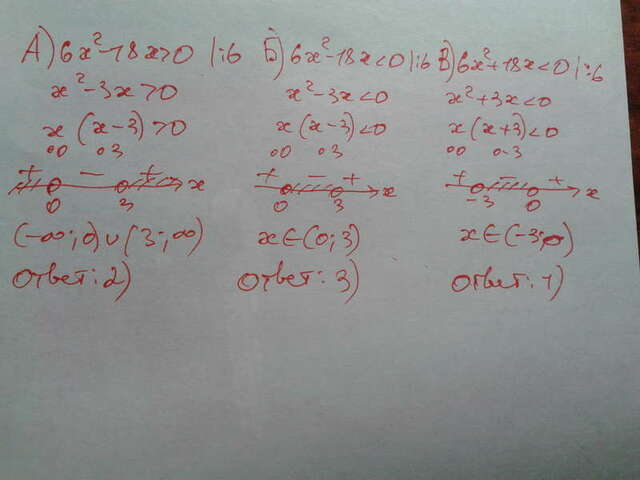 А) 6x²-18x>0 |:6
x²-3x>0
x(x-3)>0
0 3
+ - + x
0 3
(-∞;0)∪(3;∞)
ответ: 2)
Б) 6x²-18x<0 |:6
x²-3x<0
x(x-3)<0
0 3
+ - + x
0 3
x∈(0;3)
ответ: 3)
В) 6x²+18x<0 |:6
x²+3x<0
x(x+3)<0
0 -3
+ - + x
-3 0
x∈(-3;0)
ответ: 1)